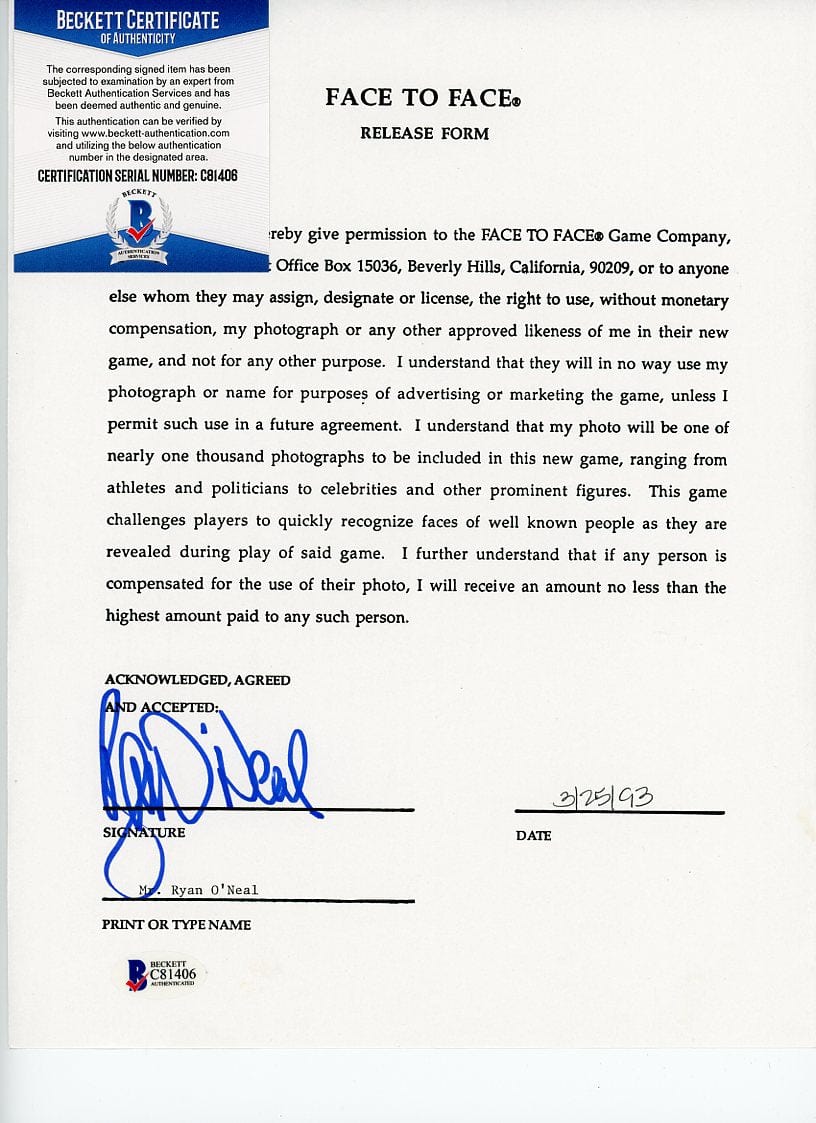 BECKETT CERTIFICATE
OF AUTHENTICITY
The corresponding signed item has been
subjected to examination by an expert from
Beckett Authentication Services and has
been deemed authentic and genuine.
This authentication can be verified by
visiting www.beckett-authentication.com
and utilizing the below authentication
number in the designated area.
CERTIFICATION SERIAL NUMBER: C81406
BECKETT
B
AUTHENTICATION
SERVICES
FACE TO FACE®
RELEASE FORM
reby give permission to the FACE TO FACE® Game Company,
Office Box 15036, Beverly Hills, California, 90209, or to anyone
else whom they may assign, designate or license, the right to use, without monetary
compensation, my photograph or any other approved likeness of me in their new
game, and not for any other purpose. I understand that they will in no way use my
photograph or name for purposes of advertising or marketing the game, unless I
permit such use in a future agreement. I understand that my photo will be one of
nearly one thousand photographs to be included in this new game, ranging from
athletes and politicians to celebrities and other prominent figures. This game
challenges players to quickly recognize faces of well known people as they are
revealed during play of said game. I further understand that if any person is
compensated for the use of their photo, I will receive an amount no less than the
highest amount paid to any such person.
ACKNOWLEDGED, AGREED
AND ACCEPTED:
Ryan O'Neal
3/25/93
SIGNATURE
DATE
Mr. Ryan O'Neal
PRINT OR TYPE NAME
B
BECKETT
C81406
AUTHENTICATED